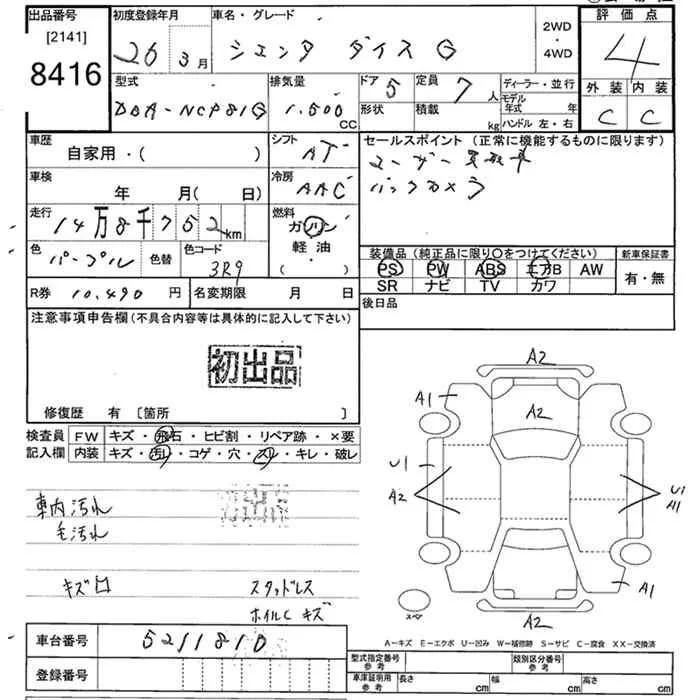 出品番号
[2141]
8416
初度登録年月
26 3月
車名・グレード
シエンタ ダイス G
2WD
・
4WD
評価点
4
外装 内装
C C
型式
DBA-NCP81G
排気量
1.500
CC
ドア 5
形状
定員 7 人
積載 kg
ディーラー・並行
モデル
年式 年
ハンドル 左・右
車歴
自家用・( )
シフト
AT
セールスポイント (正常に機能するものに限ります)
ユーザー買取車
バックカメラ
車検
年 月( 日)
冷房
AAC
走行
14万8千752km
燃料
ガソリン
軽油・
( )
色
パープル
色替
色コード
3R9
装備品 (純正品に限り〇をつけてください)
PS PW ABS エアB AW
SR ナビ TV カワ
新車保証書
有・無
R券 10.490 円
名変期限 月 日
後日品
注意事項申告欄(不具合内容等は具体的に記入して下さい)
初出品
修復歴 有 [箇所 ]
検査員
記入欄
FW キズ・飛石・ヒビ割・リペア跡・×要
内装 キズ・汚れ・コゲ・穴・スレ・キレ・破レ
車内汚れ
毛汚れ
キズ
スタッドレス
ホイルC キズ
A2
A1
A2
U1
A2
U1
A1
A1
A2
スペア
A-キズ E-エクボ U-凹み W-補修跡 S-サビ C-腐食 XX-交換済
車台番号 5211810
登録番号
型式指定番号
参考
類別区分番号
参考
車庫証明用
参考
長さ cm 幅 cm 高さ cm